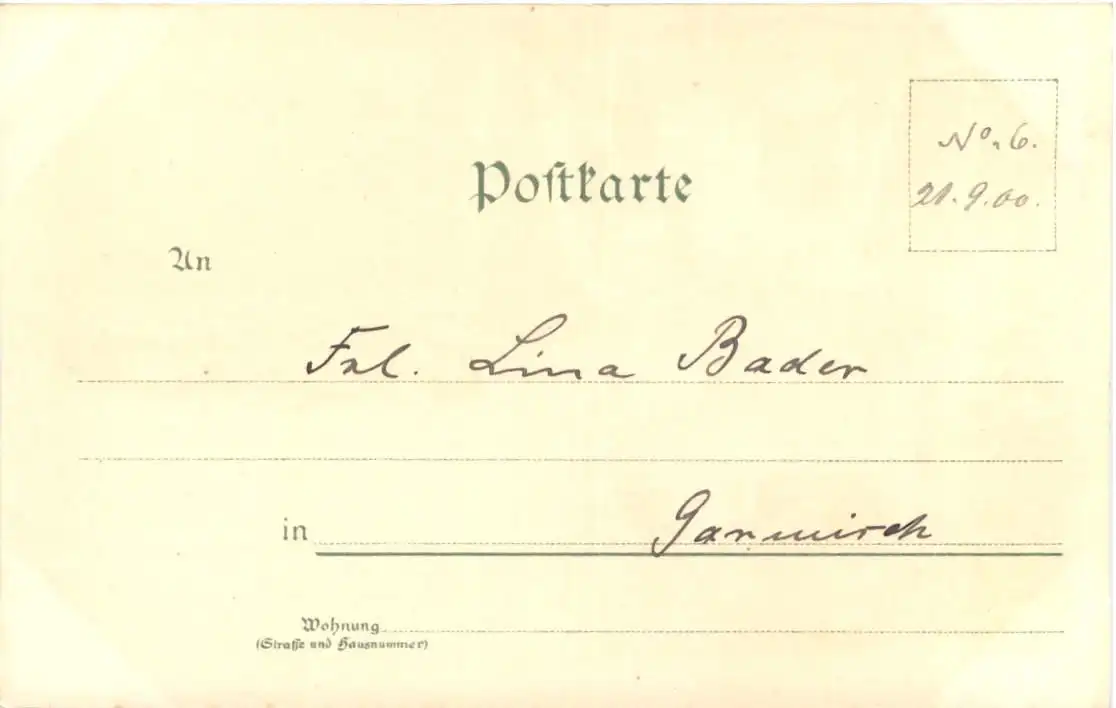 Postkarte
No. 6.
21.9.00.
An
Frl. Lina Bader
in Garmisch
Wohnung
(Straße und Hausnummer)